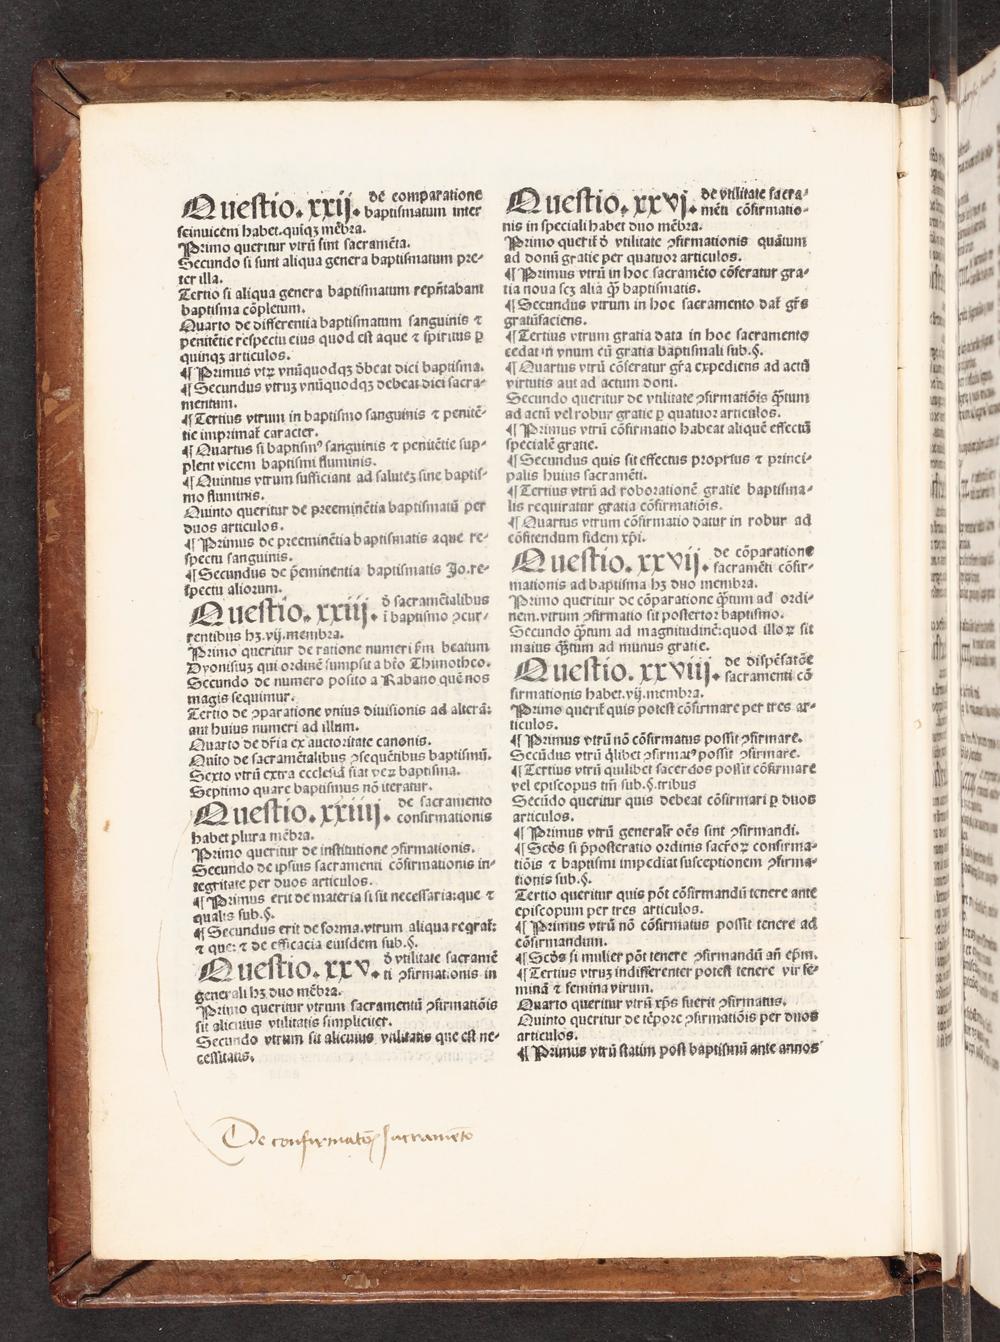 Questio.xxij. de comparatione
baptismatum inter
seinuicem habet.quiqz mẽbra.
Primo queritur vtrũ sint sacramẽta.
Secundo si sunt aliqua genera baptismatum pre⸗
ter illa.
Tertio si aliqua genera baptismatum repñtabant
baptisma cõpletum.
Quarto de differentia baptismatum sanguinis ⁊
penitẽtie respectu eius quod est aque ⁊ spiritus ꝑ
quinqz articulos.
¶ Primus vtꝝ vnũquodqz ðbeat dici baptisma.
¶ Secundus vtruz vnũquodqz debeat dici sacra⸗
mentum.
¶ Tertius vtrum in baptismo sanguinis ⁊ penitẽ⸗
tie imprimat̃ caracter.
¶ Quartus si baptismꝰ sanguinis ⁊ penitẽtie sup⸗
plent vicem baptismi fluminis.
¶ Quintus vtrum sufficiant ad salutez sine baptis⸗
mo fluminis.
Quinto queritur de preeminẽtia baptismatũ per
duos articulos.
¶ Primus de preeminẽtia baptismatis aque re⸗
spectu sanguinis.
¶ Secundus de p̃eminentia baptismatis Jo.re⸗
spectu aliorum.
Questio.xxiij. ð sacramẽtalibus
ĩ baptismo ꝯcur⸗
rentibus hz.vij.membra.
Primo queritur de ratione numeri ẜm beatum
Dyonisiuz qui ordinẽ sumpsit a bẽo Thimotheo.
Secundo de numero posito a Rabano quẽ nos
magis sequimur.
Tertio de ꝯparatione vnius diuisionis ad alterã:
aut huius numeri ad illum.
Quarto de dr̃ia ex auctoritate canonis.
Quito de sacramẽtalibus ꝯsequẽtibus baptismũ.
Sexto vtrũ extra ecclesiã fiat veꝝ baptisma.
Septimo quare baptismus nõ iteratur.
Questio.xxiiij. de sacramento
confirmationis
habet plura mẽbra.
Primo queritur de institutione ꝯfirmationis.
Secundo de ipsius sacramenti cõfirmationis in⸗
tegritate per duos articulos.
¶ Primus erit de materia si sit necessaria:que ⁊
qualis sub.§.
¶ Secundus erit de forma.vtrum aliqua reqrat̃:
⁊ que: ⁊ de efficacia eiusdem sub.§.
Questio.xxv. ð vtilitate sacramẽ
ti ꝯfirmationis in
generali hz duo mẽbra.
Primo queritur vtrum sacramentũ ꝯfirmatiõis
sit alicuius vtilitatis simpliciter.
Secundo vtrum sit alicuius vtilitatis que est ne⸗
cessitatis.
De confirmatõe sacramẽto
Questio.xxvj. de vtilitate sacra⸗
mẽti cõfirmatio⸗
nis in speciali habet duo mẽbra.
Primo querit̃ ð vtilitate ꝯfirmationis quãtum
ad donũ gratie per quatuor articulos.
¶ Primus vtrũ in hoc sacramẽto cõferatur gra⸗
tia noua scz alia q̃ baptismatis.
¶ Secundus vtrum in hoc sacramento dat̃ gr̃s
gratũfaciens.
¶ Tertius vtrum gratia data in hoc sacramento
cedat in vnum cũ gratia baptismali sub.§.
¶ Quartus vtrũ cõferatur gr̃a expediens ad actũ
virtutis aut ad actum doni.
Secundo queritur de vtilitate ꝯfirmatiõis q̃tum
ad actũ vel robur gratie ꝑ quatuor articulos.
¶ Primus vtrũ cõfirmatio habeat aliquẽ effectũ
specialẽ gratie.
¶ Secundus quis sit effectus proprius ⁊ princi⸗
palis huius sacramẽti.
¶ Tertius vtrũ ad roborationẽ gratie baptisma⸗
lis requiratur gratia cõfirmatiõis.
¶ Quartus vtrum cõfirmatio datur in robur ad
cõfitendum fidem xp̃i.
Questio.xxvij. de cõparatione
sacramẽti cõfir⸗
mationis ad baptisma hz duo membra.
Primo queritur de cõparatione q̃tum ad ordi⸗
nem.vtrum ꝯfirmatio sit posterior baptismo.
Secundo q̃tum ad magnitudinẽ:quod illoꝝ sit
maius q̃tum ad munus gratie.
Questio.xxviij. de dispẽsatõe
sacramenti cõ
firmationis habet.vij.membra.
Primo querit̃ quis potest cõfirmare per tres ar⸗
ticulos.
¶ Primus vtrũ nõ cõfirmatus possit ꝯfirmare.
Secũdus vtrũ q̃libet ꝯfirmatꝰ possit ꝯfirmare.
¶ Tertius vtrũ quilibet sacerdos possit cõfirmare
vel episcopus tm̃ sub.§.tribus
Secũdo queritur quis debeat cõfirmari ꝑ duos
articulos.
¶ Primus vtrũ generalr̃ oẽs sint ꝯfirmandi.
¶ Scđs si p̃posteratio ordinis sacr̃oꝝ confirma⸗
tiõis ⁊ baptismi impediat susceptionem ꝯfirma⸗
tionis sub.§.
Tertio queritur quis põt cõfirmandũ tenere ante
episcopum per tres articulos.
¶ Primus vtrũ nõ cõfirmatus possit tenere ad
cõfirmandum.
¶ Scđs si mulier põt tenere ꝯfirmandũ añ ep̃m.
¶ Tertius vtruz indifferenter potest tenere vir fe⸗
minã ⁊ femina virum.
Quarto queritur vtrũ xp̃s fuerit ꝯfirmatus.
Quinto queritur de tẽpore ꝯfirmatiõis per duos
articulos.
¶ Primus vtrũ statim post baptismũ ante annos